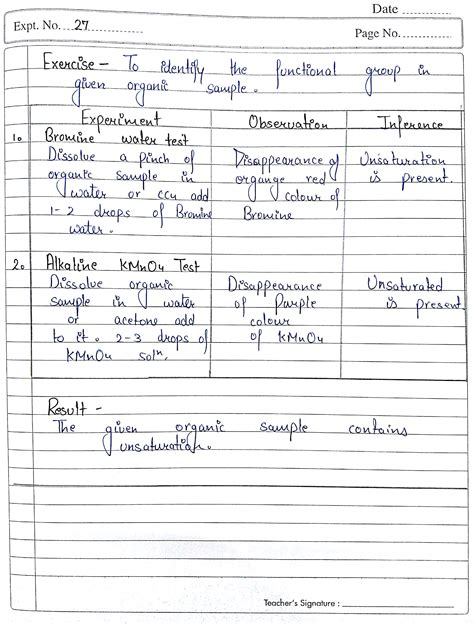 Date
Expt. No. 27
Page No.
Exercise - To identify the functional group in
given organic sample.
Experiment Observation Inference
1. Bromine water test
Dissolve a pinch of Disappearance of Unsaturation
organic sample in organge red is present.
water or CCl4 add colour of
1-2 drops of Bromine Bromine
water.
2. Alkaline KMnO4 Test
Dissolve organic Disappearance Unsaturated
sample in water of Purple is present
or acetone add colour
to it. 2-3 drops of of KMnO4
KMnO4 solⁿ.
Result -
The given organic sample contains
unsaturation.
Teacher's Signature :